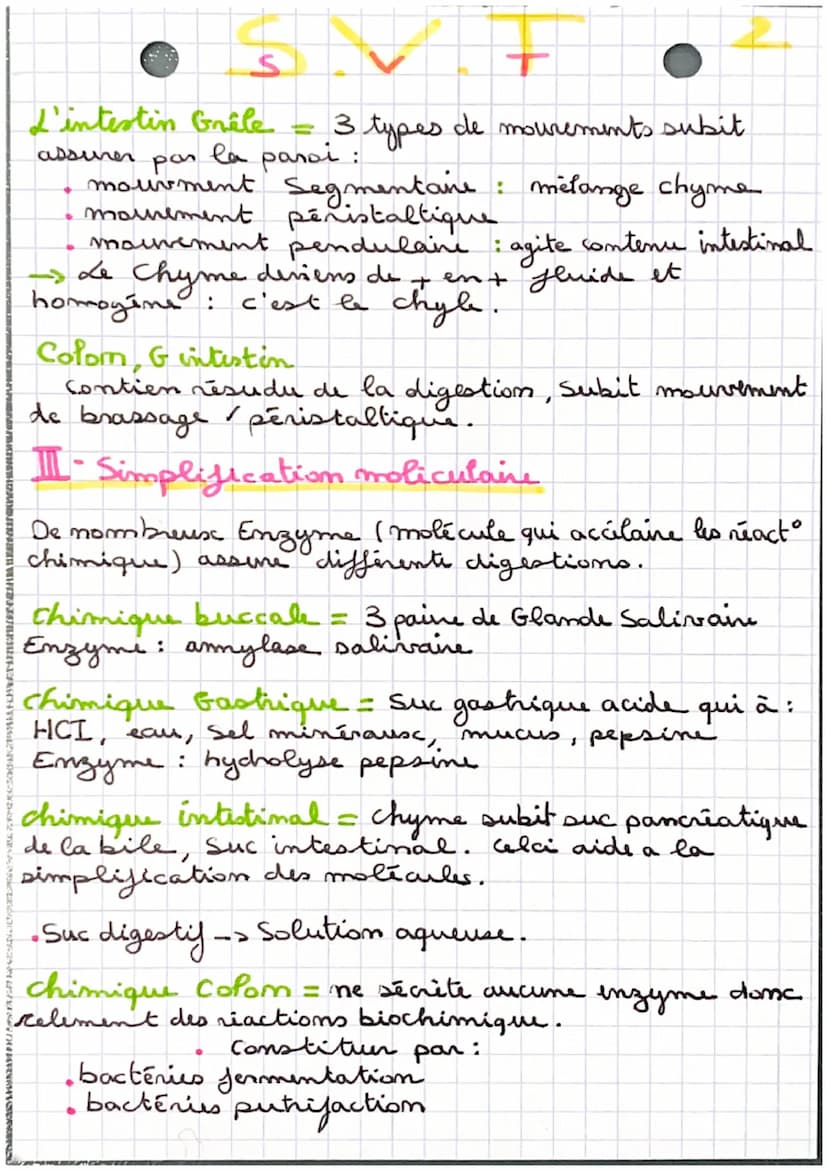 S.V.T 2
S V T
L'intestin Grêle = 3 types de mouvements subit
assurer par la paroi :
• mouvment Segmentaire : mélange chyme
• mouvement péristaltique
• mouvement pendulaire : agite contenu intestinal
→ Le Chyme deviens de + en + fluide et
homogène : c'est le chyle.
Colon, G intestin
Contien résudu de la digestion, Subit mouvement
de brassage / péristaltique.
III - Simplification moliculaire
De nombreuse Enzyme (molécule qui accélaire les réact°
chimique) assure différente digestions.
Chimique buccale = 3 paire de Glande Salivaire
Enzyme : amylase salivaire
Chimique Gastrique = Suc gastrique acide qui à :
HCl, eau, Sel minéraux, mucus, pepsine
Enzyme : hydrolyse pepsine
chimique intestinal = chyme subit suc pancréatique
de la bile, Suc intestinal. Celci aide a la
simplification des molécules.
• Suc digestif -> Solution aqueuse.
Chimique Colon = ne sécrite aucune enzyme donc
selement des réactions biochimique.
• Constituer par :
• bactéries fermentation
• bactéries putrifaction